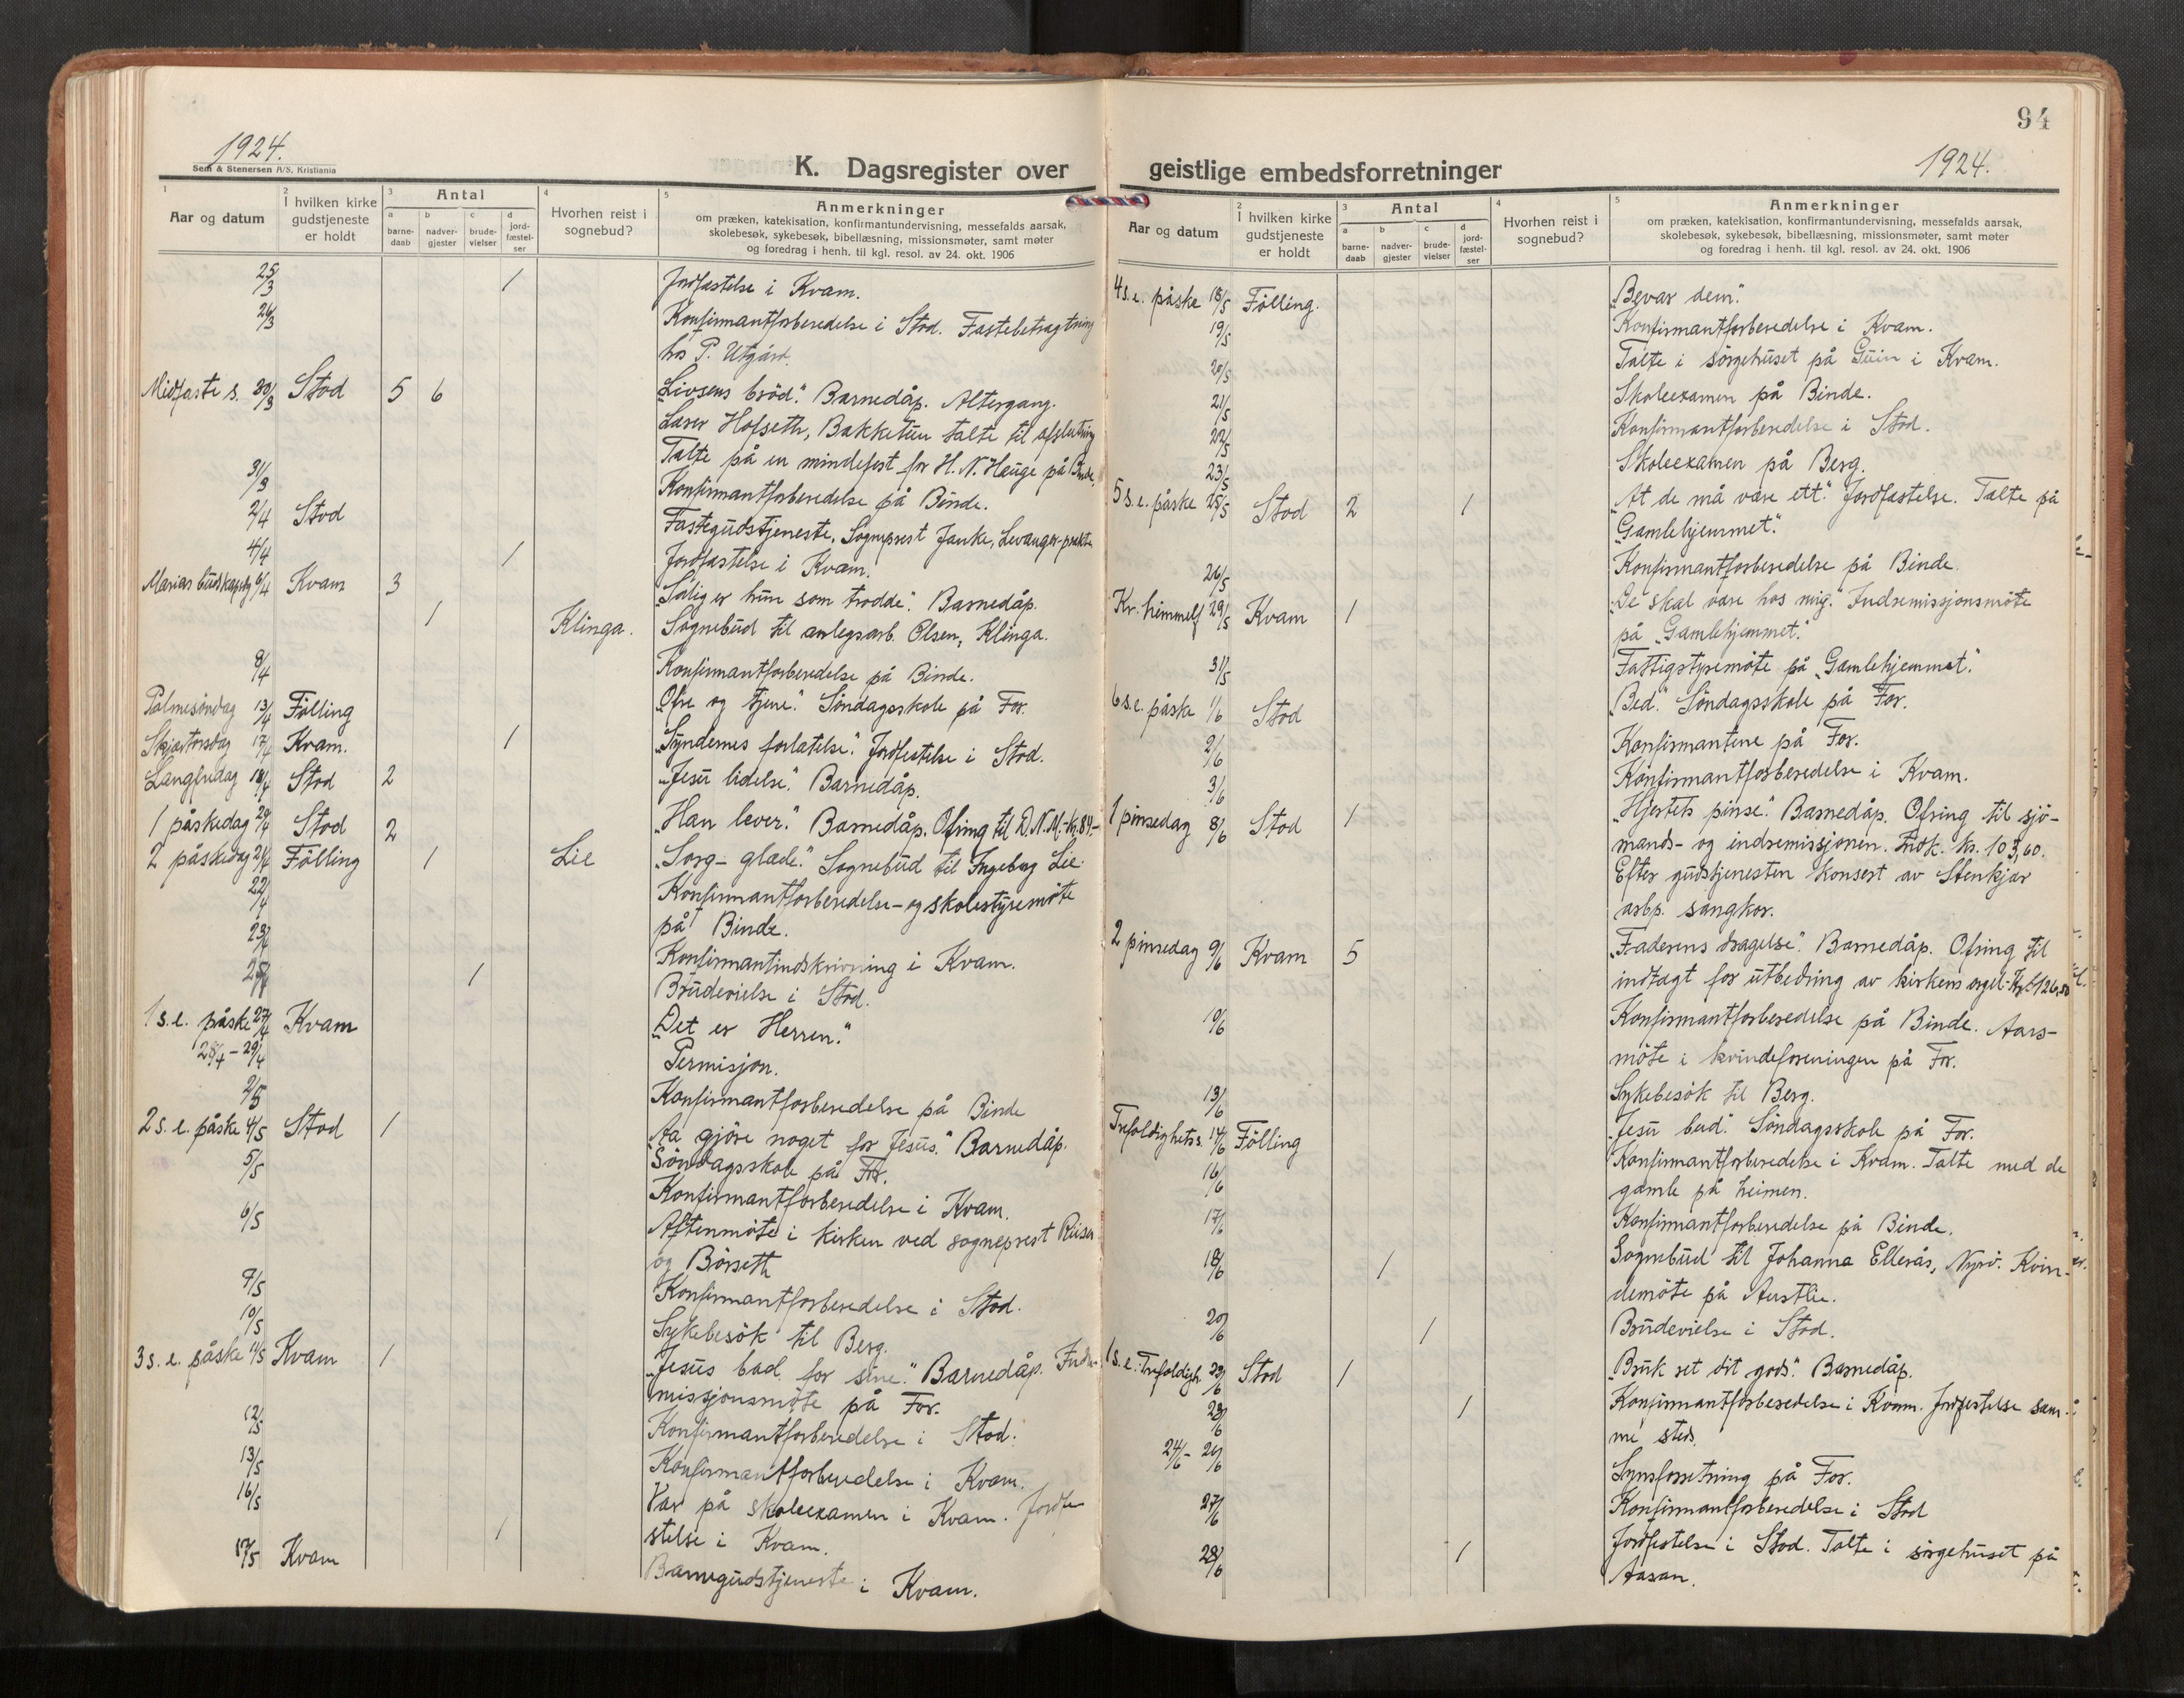 1924.
Sem & Stenersen A/S, Kristiania
K. Dagsregister over
1 Aar og datum
2 I hvilken kirke gudstjeneste er holdt
3 Antal
a barnedaab
b nadvergjester
c brudevielser
d jordfæstelser
4 Hvorhen reist i sognebud?
5 Anmerkninger
om præken, katekisation, konfirmantundervisning, messefalds aarsak,
skolebesøk, sykebesøk, bibellæsning, missionsmøter, samt møter
og foredrag i henh. til kgl. resol. av 24. okt. 1906
25/3 1 Jordfæstelse i Kvam.
26/3 Konfirmantforberedelse i Stod. Fastebetragtning
hos P. Utgård.
Midfaste s. 30/3 Stod 5 6 "Livsens bröd." Barnedåp. Altergang.
Lærer Hofseth, Bakketun talte til afslutning
31/3 Talte på en mindefest for H. N. Hauge på Binde.
Konfirmantforberedelse på Binde.
2/4 Stod Fastegudstjeneste, Sogneprest Janke, Levanger-prekte
4/4 1 Jordfæstelse i Kvam.
Marias budskapsdg 6/4 Kvam 3 "Salig er hun som trodde". Barnedåp.
1 Klinga. Sognebud til anlegsarb. Olsen, Klinga.
8/4 Konfirmantforberedelse på Binde.
Palmesöndag 13/4 Fölling "Ofre og tjene." Söndagsskole på For.
Skjærtorsdag 17/4 Kvam. 1 "Syndernes forlatelse." Jordfestelse i Stod.
Langfredag 18/4 Stod 2 "Jesu lidelse." Barnedåp.
1 påskedag 20/4 Stod 2 "Han lever." Barnedåp. Ofring til D.N.M.-kr. 84.-
2 påskedag 21/4 Fölling 1 Lie "Sorg-glæde." Sognebud til Ingeborg Lie.
22/4 Konfirmantforberedelse- og skolestyremöte
på Binde.
23/4 Konfirmantindskrivning i Kvam.
25/4 1 Brudevielse i Stod.
1 s.e. påske 27/4 Kvam "Det er Herren."
28/4 - 29/4 Permisjon.
2/5 Konfirmantforberedelse på Binde
2 s.e. påske 4/5 Stod 1 "Aa gjöre noget for Jesus." Barnedåp.
Söndagsskole på For.
5/5 Konfirmantforberedelse i Kvam.
6/5 Aftenmöte i kirken ved sogneprest Riiser
og Börseth
7/5 Konfirmantforberedelse i Stod.
10/5 Sykebesök til Berg.
3 s.e. påske 11/5 Kvam 1 "Jesus bad for sine." Barnedåp. Indre-
missjonsmöte på For.
12/5 Konfirmantforberedelse i Stod.
13/5 Konfirmantforberedelse i Kvam.
16/5 1 Var på skoleexamen i Kvam. Jordfe
stelse i Kvam.
17/5 Kvam Barnegudstjeneste i Kvam.
94
geistlige embedsforretninger
1924.
Aar og datum
2 I hvilken kirke gudstjeneste er holdt
3 Antal
a barnedaab
b nadvergjester
c brudevielser
d jordfæstelser
4 Hvorhen reist i sognebud?
5 Anmerkninger
om præken, katekisation, konfirmantundervisning, messefalds aarsak,
skolebesøk, sykebesøk, bibellæsning, missionsmøter, samt møter
og foredrag i henh. til kgl. resol. av 24. okt. 1906
4 s.e. påske 18/5 Fölling. "Bevar dem."
19/5 Konfirmantforberedelse i Kvam.
20/5 Talte i sörgehuset på Guin i Kvam.
21/5 Skoleexamen på Binde.
22/5 Konfirmantforberedelse i Stod.
23/5 Skoleexamen på Berg.
5 s.e. påske 25/5 Stod 2 1 "At de må være ett." Jordfæstelse. Talte på
"Gamlehjemmet".
26/5 Konfirmantforberedelse på Binde.
Kr. himmelf 29/5 Kvam 1 "De skal være hos mig." Indremissjonsmöte
på "Gamlehjemmet."
31/5 Fattigstyremöte på "Gamlehjemmet".
6 s.e. påske 1/6 Stod "Bed." Söndagsskole på For.
2/6 Konfirmantene på For.
3/6 Konfirmantforberedelse i Kvam.
1 pinsedag 8/6 Stod 1 "Hjertets pinse." Barnedåp. Ofring til sjö-
mands- og indremissjonen. Indk. kr. 103,60.
Efter gudstjenesten konsert av Stenkjær
arbp. sangkor.
2 pinsedag 9/6 Kvam 5 "Faderens dragelse". Barnedåp. Ofring til
indtægt for utbedring av kirkens orgel-kr. 126,50
10/6 Konfirmantforberedelse på Binde. Aars-
möte i kvindeforeningen på For.
13/6 Sykebesök til Berg.
Trefoldighetss. 14/6 Fölling "Jesu bud". Söndagsskole på For.
16/6 Konfirmantforberedelse i Kvam. Talte med de
gamle på heimen.
17/6 Konfirmantforberedelse på Binde.
18/6 1 Sognebud til Johanna Ellerås, Kvin-
demöte på Austlie.
20/6 1 Brudevielse i Stod.
1 s.e. Trefoldigh. 22/6 Stod 1 "Bruk ret dit gods." Barnedåp.
23/6 1 Konfirmantforberedelse i Kvam. Jordfestelse sam-
me sted.
24/6 - 26/6 Synsforretning på For.
27/6 Konfirmantforberedelse i Stod
28/6 1 Jordfestelse i Stod. Talte i sörgehuset på
Aasan.